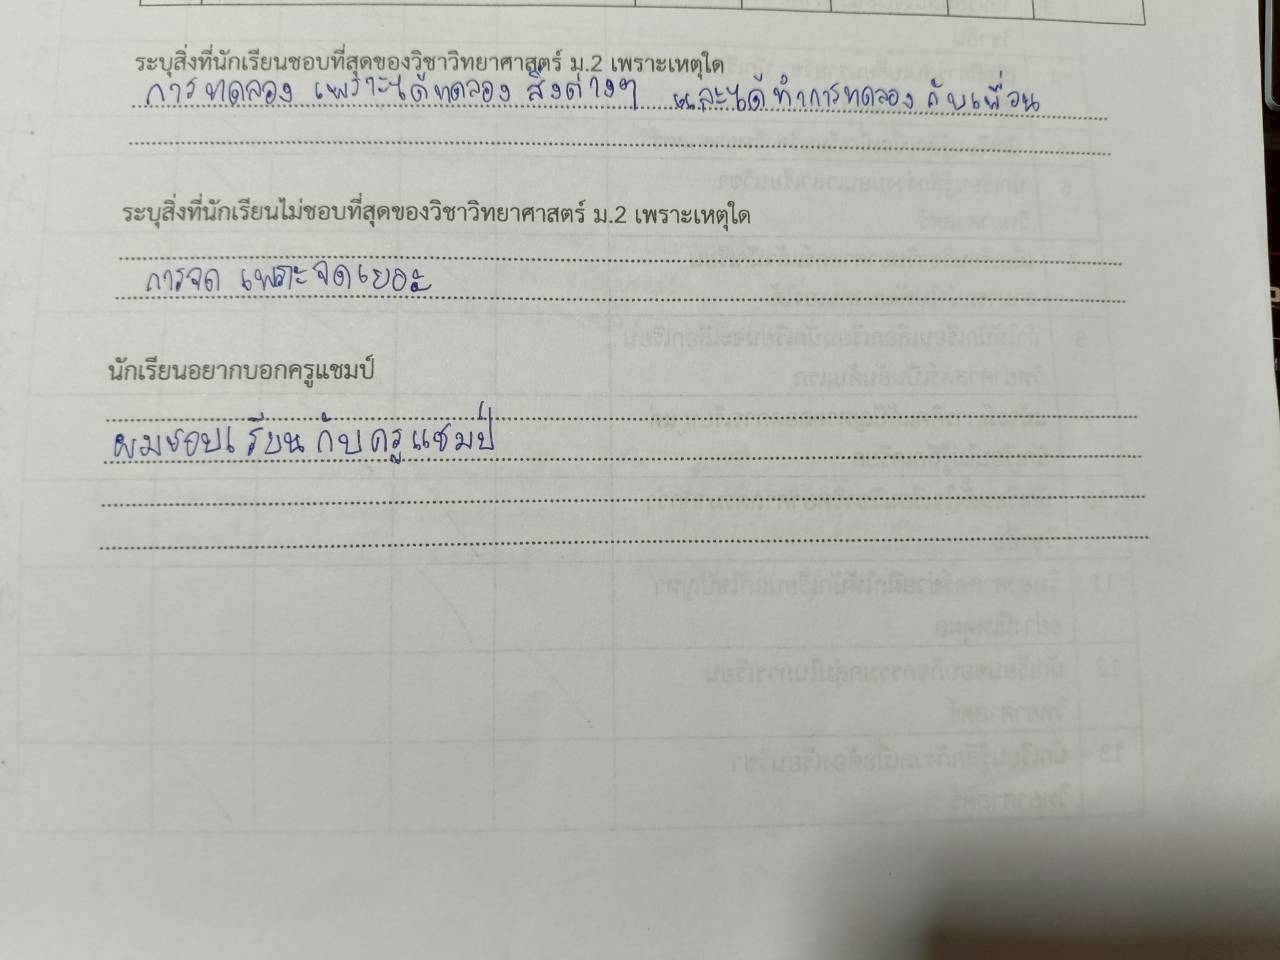 ระบุสิ่งที่นักเรียนชอบที่สุดของวิชาวิทยาศาสตร์ ม.2 เพราะเหตุใด
การทดลอง เพราะได้ทดลอง สิ่งต่างๆ และได้ทำการทดลอง กับเพื่อน
ระบุสิ่งที่นักเรียนไม่ชอบที่สุดของวิชาวิทยาศาสตร์ ม.2 เพราะเหตุใด
การจด เพราะจดเยอะ
นักเรียนอยากบอกครูแชมป์
ผมชอบเรียนกับครูแชมป์